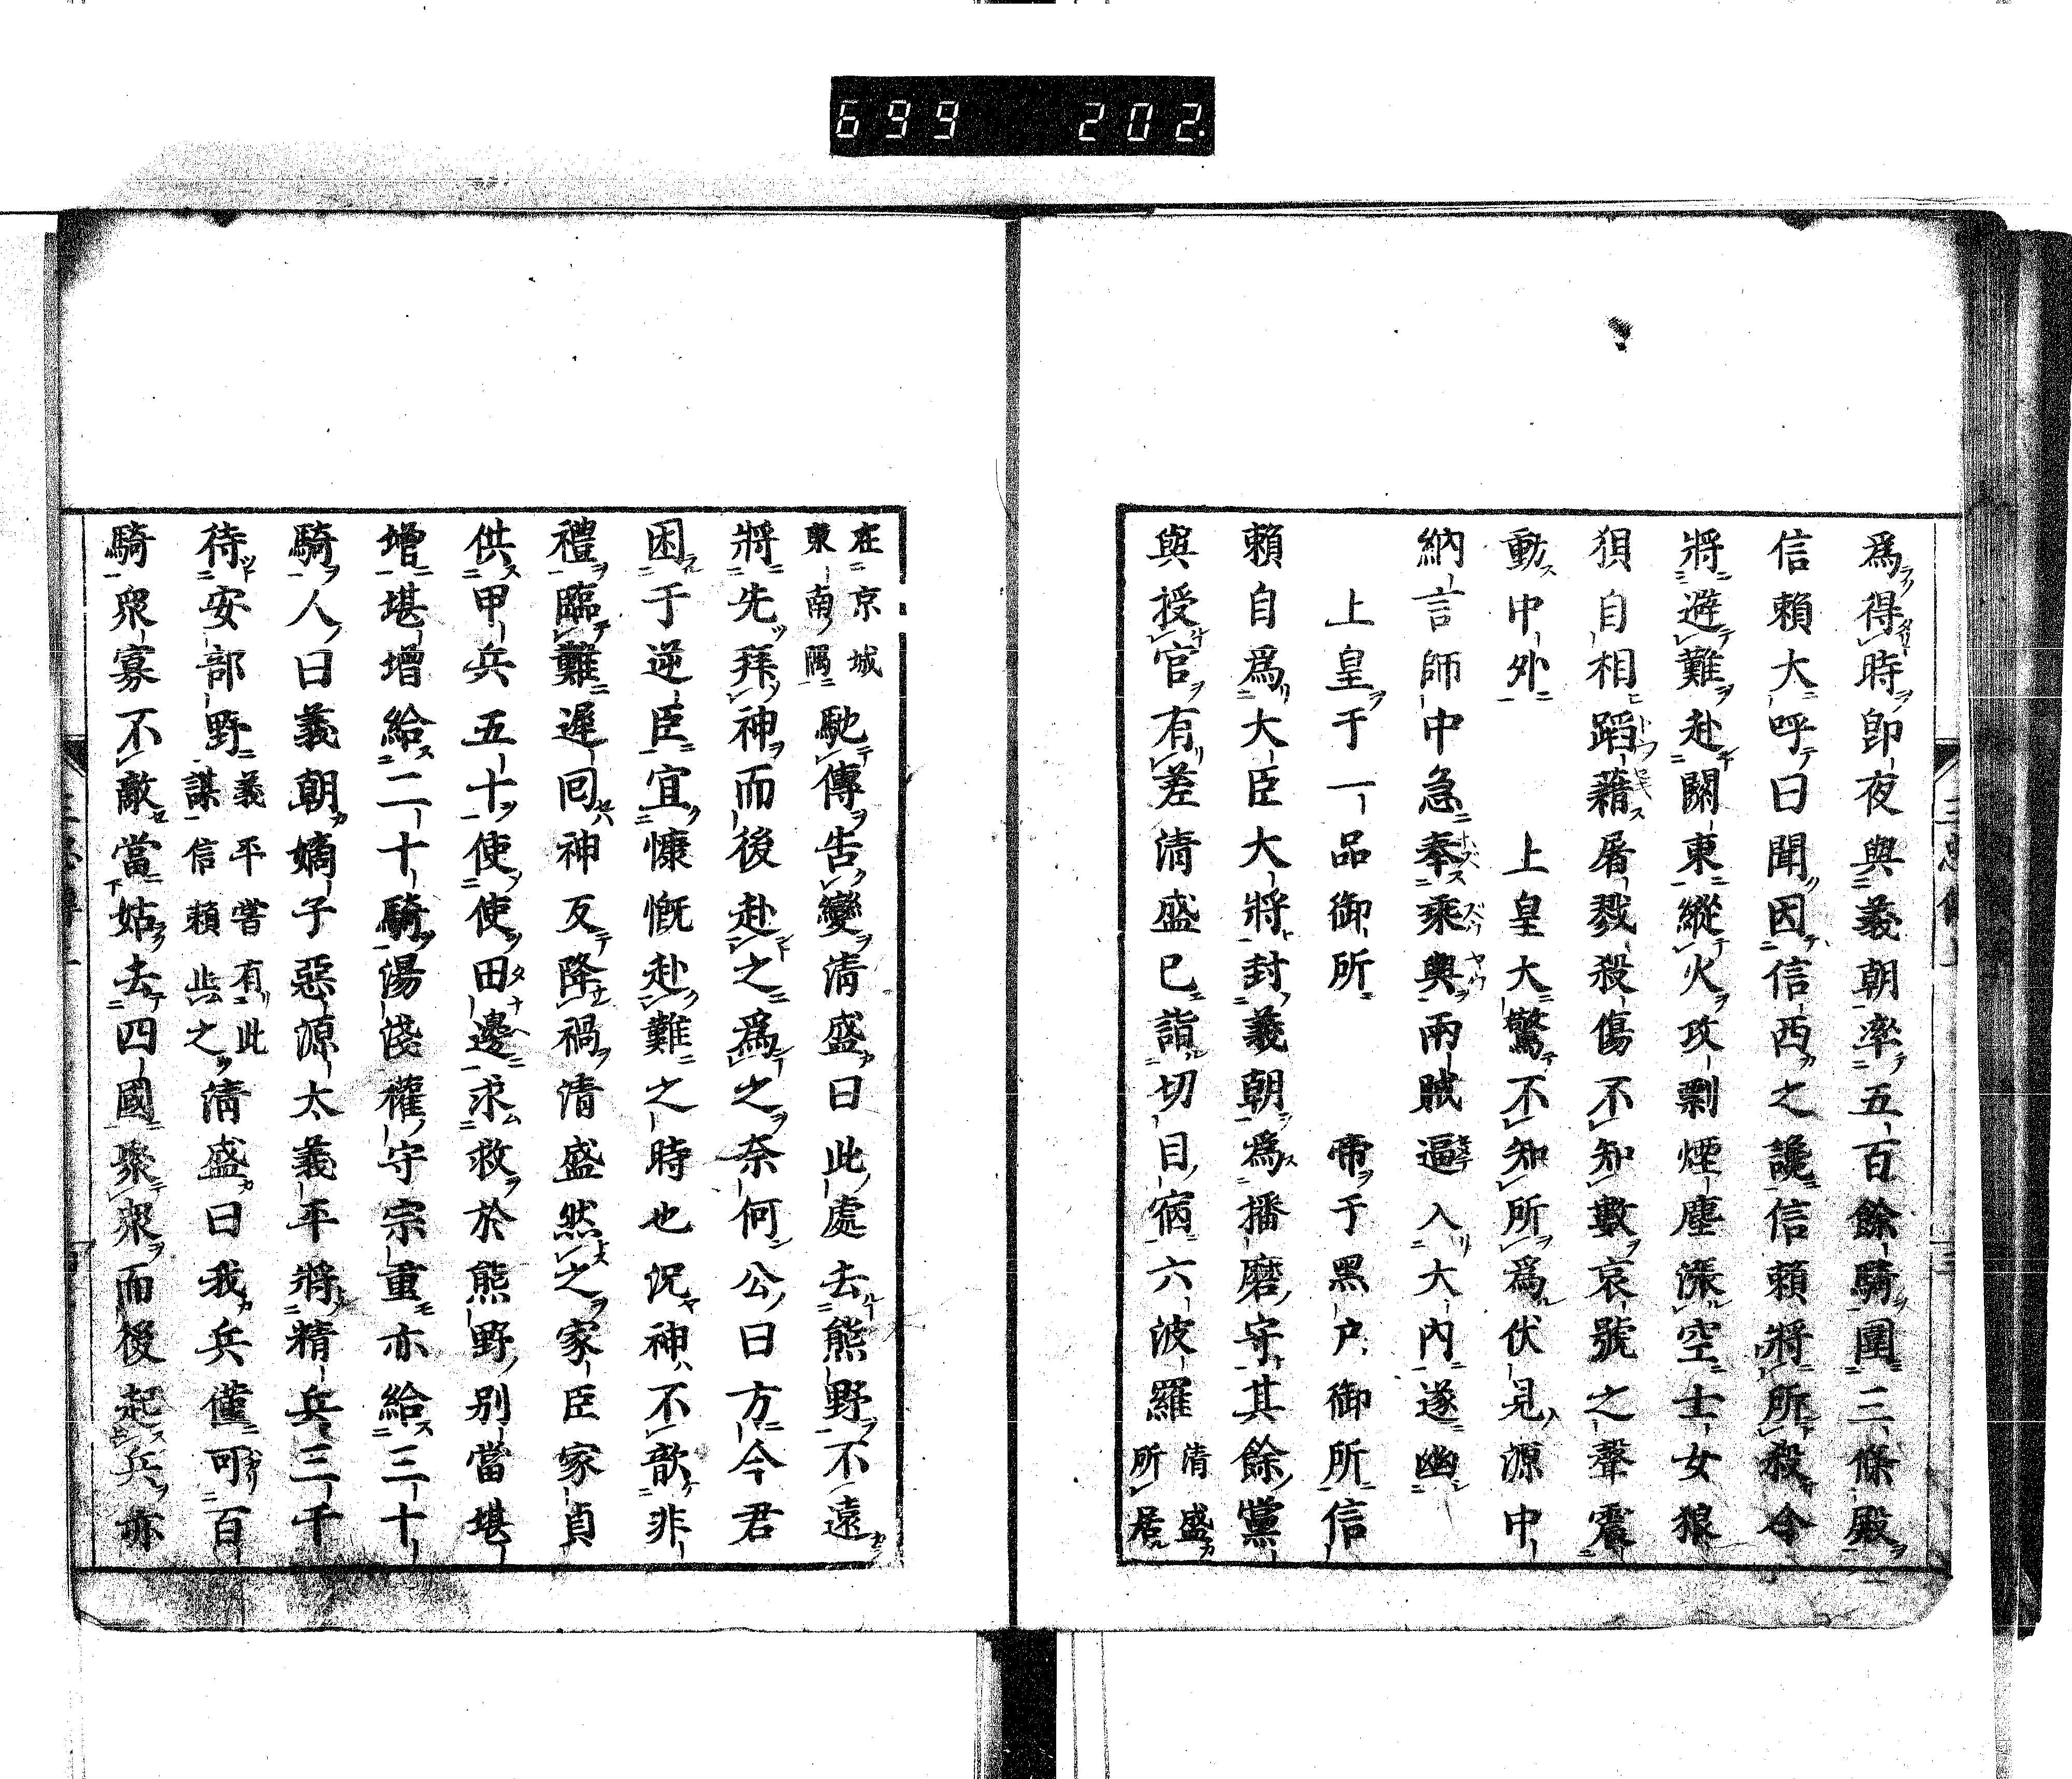 699 202.
爲得時卽夜與義朝率五百餘騎圍三條殿
信賴大呼曰聞因信西之讒信賴將所殺今
將避難赴關東縱火攻剽煙塵漲空士女狼
狽自相蹈藉屠戮殺傷不知數哀號之聲震
動中外 上皇大驚不知所爲伏見源中
納言師中急奉乘輿兩賊逼入大內遂幽
上皇于一品御所 帝于黑戶御所信
賴自爲大臣大將封義朝爲播磨守其餘黨
與授官有差淸盛已詣切目宿六波羅淸盛所居
在京城東南隅馳傳告變淸盛曰此處去熊野不遠
將先拜神而後赴之爲之奈何公曰方今君
困于逆臣宜慷慨赴難之時也況神不歆非
禮臨難遲回神反降禍淸盛然之家臣家貞
供甲兵五十使使田邊求救於熊野別當堪
增堪增給二十騎湯淺權守宗重亦給三十
騎人曰義朝嫡子惡源太義平將精兵三千
待安部野義平嘗有此謀信賴止之淸盛曰我兵僅可百
騎衆寡不敵當姑去四國聚衆而後起兵亦